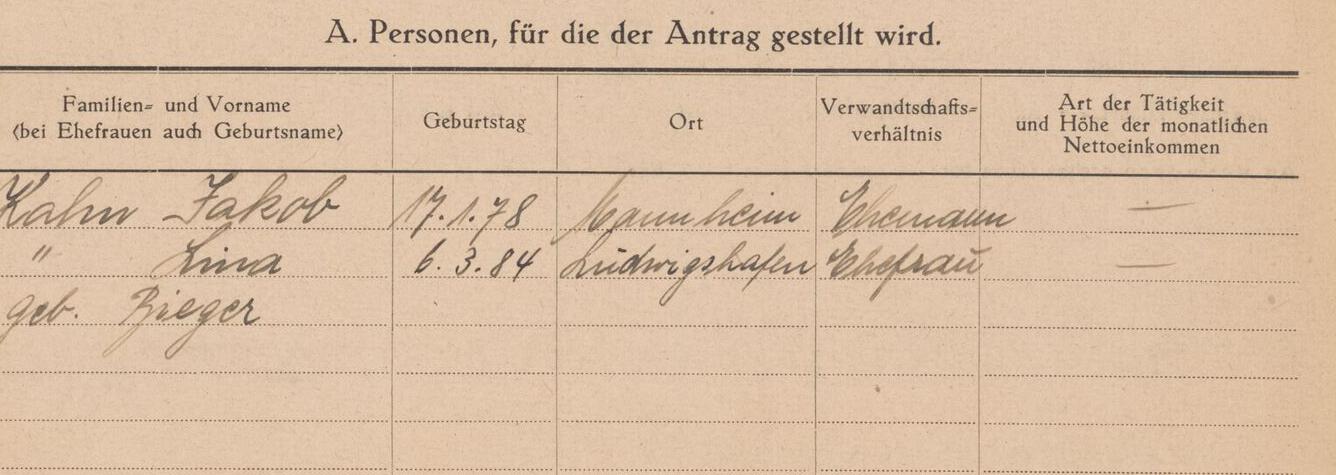 A. Personen, für die der Antrag gestellt wird.
Familien- und Vorname
(bei Ehefrauen auch Geburtsname)
Geburtstag
Ort
Verwandtschafts-
verhältnis
Art der Tätigkeit
und Höhe der monatlichen
Nettoeinkommen
Kahn Jakob 17.1.78 Mannheim Ehemann —
" Lina 6.3.84 Ludwigshafen Ehefrau —
geb.